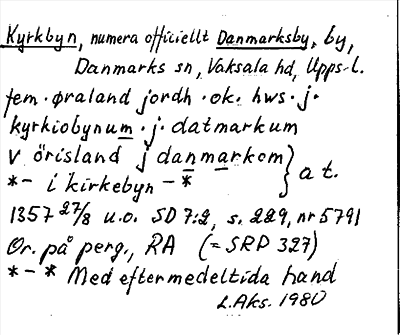 Kyrkbyn, numera officiellt Danmarksby, by,
Danmarks sn, Vaksala hd, Upps.l.
fem · øraland jordh · ok · hws · j ·
kyrkiobynum · j · datmarkum
V örisland j danmarkom } a t.
*- i kirkebyn -*
1357 27/8 u.o. SD 7:2, s. 229, nr 5791
Or. på perg., RA (= SRP 327)
*-* Med eftermedeltida hand
L.Aks. 1980